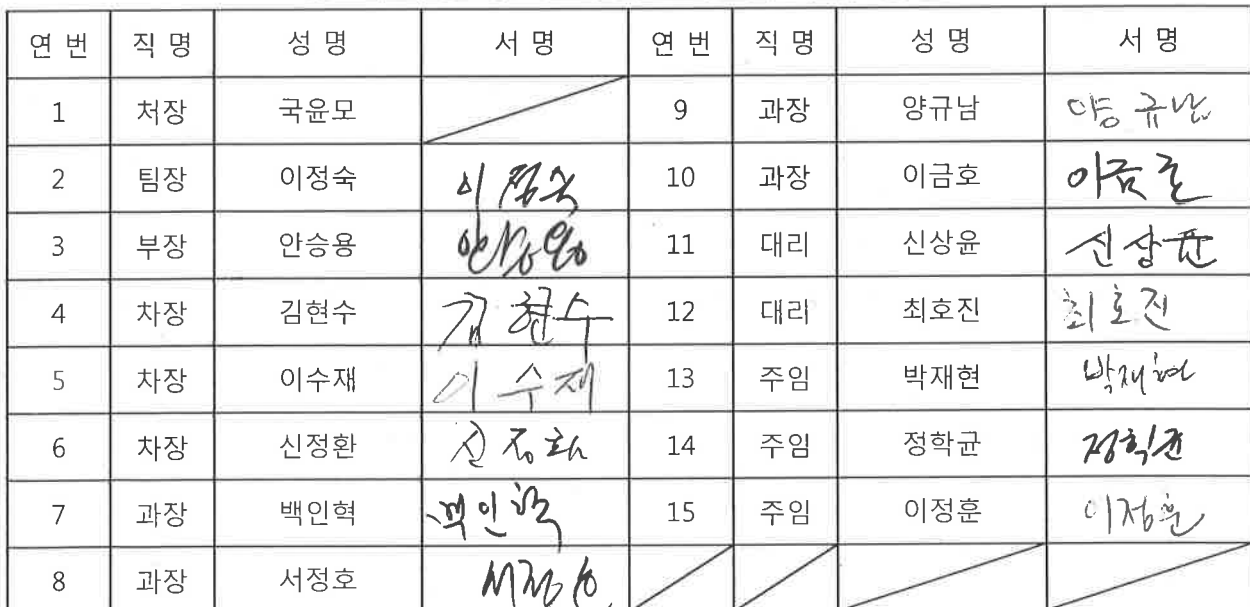 연 번 직 명 성 명 서 명 연 번 직 명 성 명 서 명
1 처장 국윤모 9 과장 양규남 양규남
2 팀장 이정숙 이정숙 10 과장 이금호 이금호
3 부장 안승용 안승용 11 대리 신상윤 신상윤
4 차장 김현수 김현수 12 대리 최호진 최호진
5 차장 이수재 이수재 13 주임 박재현 박재현
6 차장 신정환 신정환 14 주임 정학균 정학균
7 과장 백인혁 백인혁 15 주임 이정훈 이정훈
8 과장 서정호 서정호